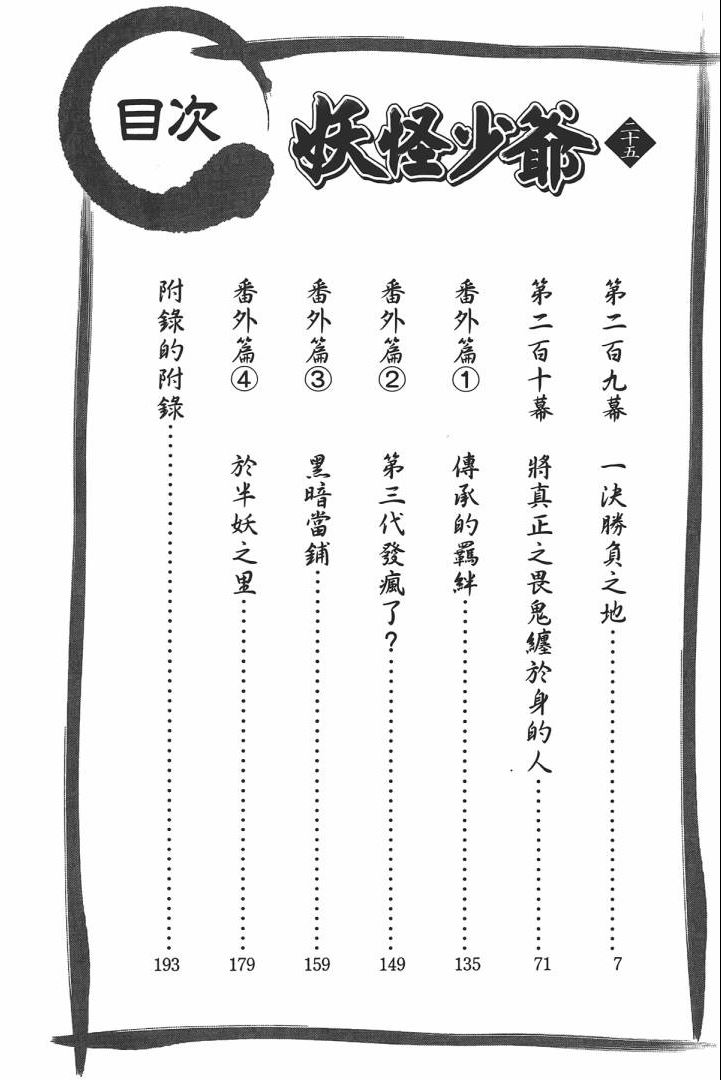 目次
妖怪少爺 二十五
第二百九幕 一決勝負之地……7
第二百十幕 將真正之畏鬼纏於身的人……71
番外篇① 傳承的羈絆……135
番外篇② 第三代發瘋了？……149
番外篇③ 黑暗當鋪……159
番外篇④ 於半妖之里……179
附錄的附錄……193